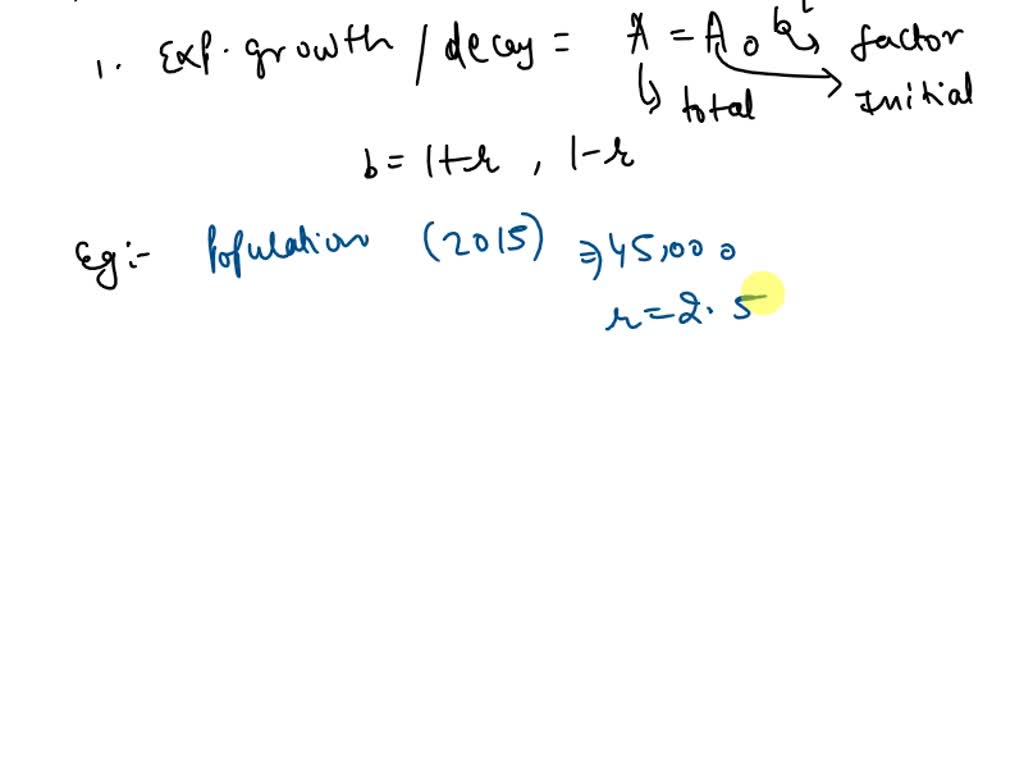 1. Exp. growth / decay = A = A₀ bᵗ factor
total Initial
b = 1+r , 1-r
Eg:- Population (2015) ⇒ 45,000
r = 2.5